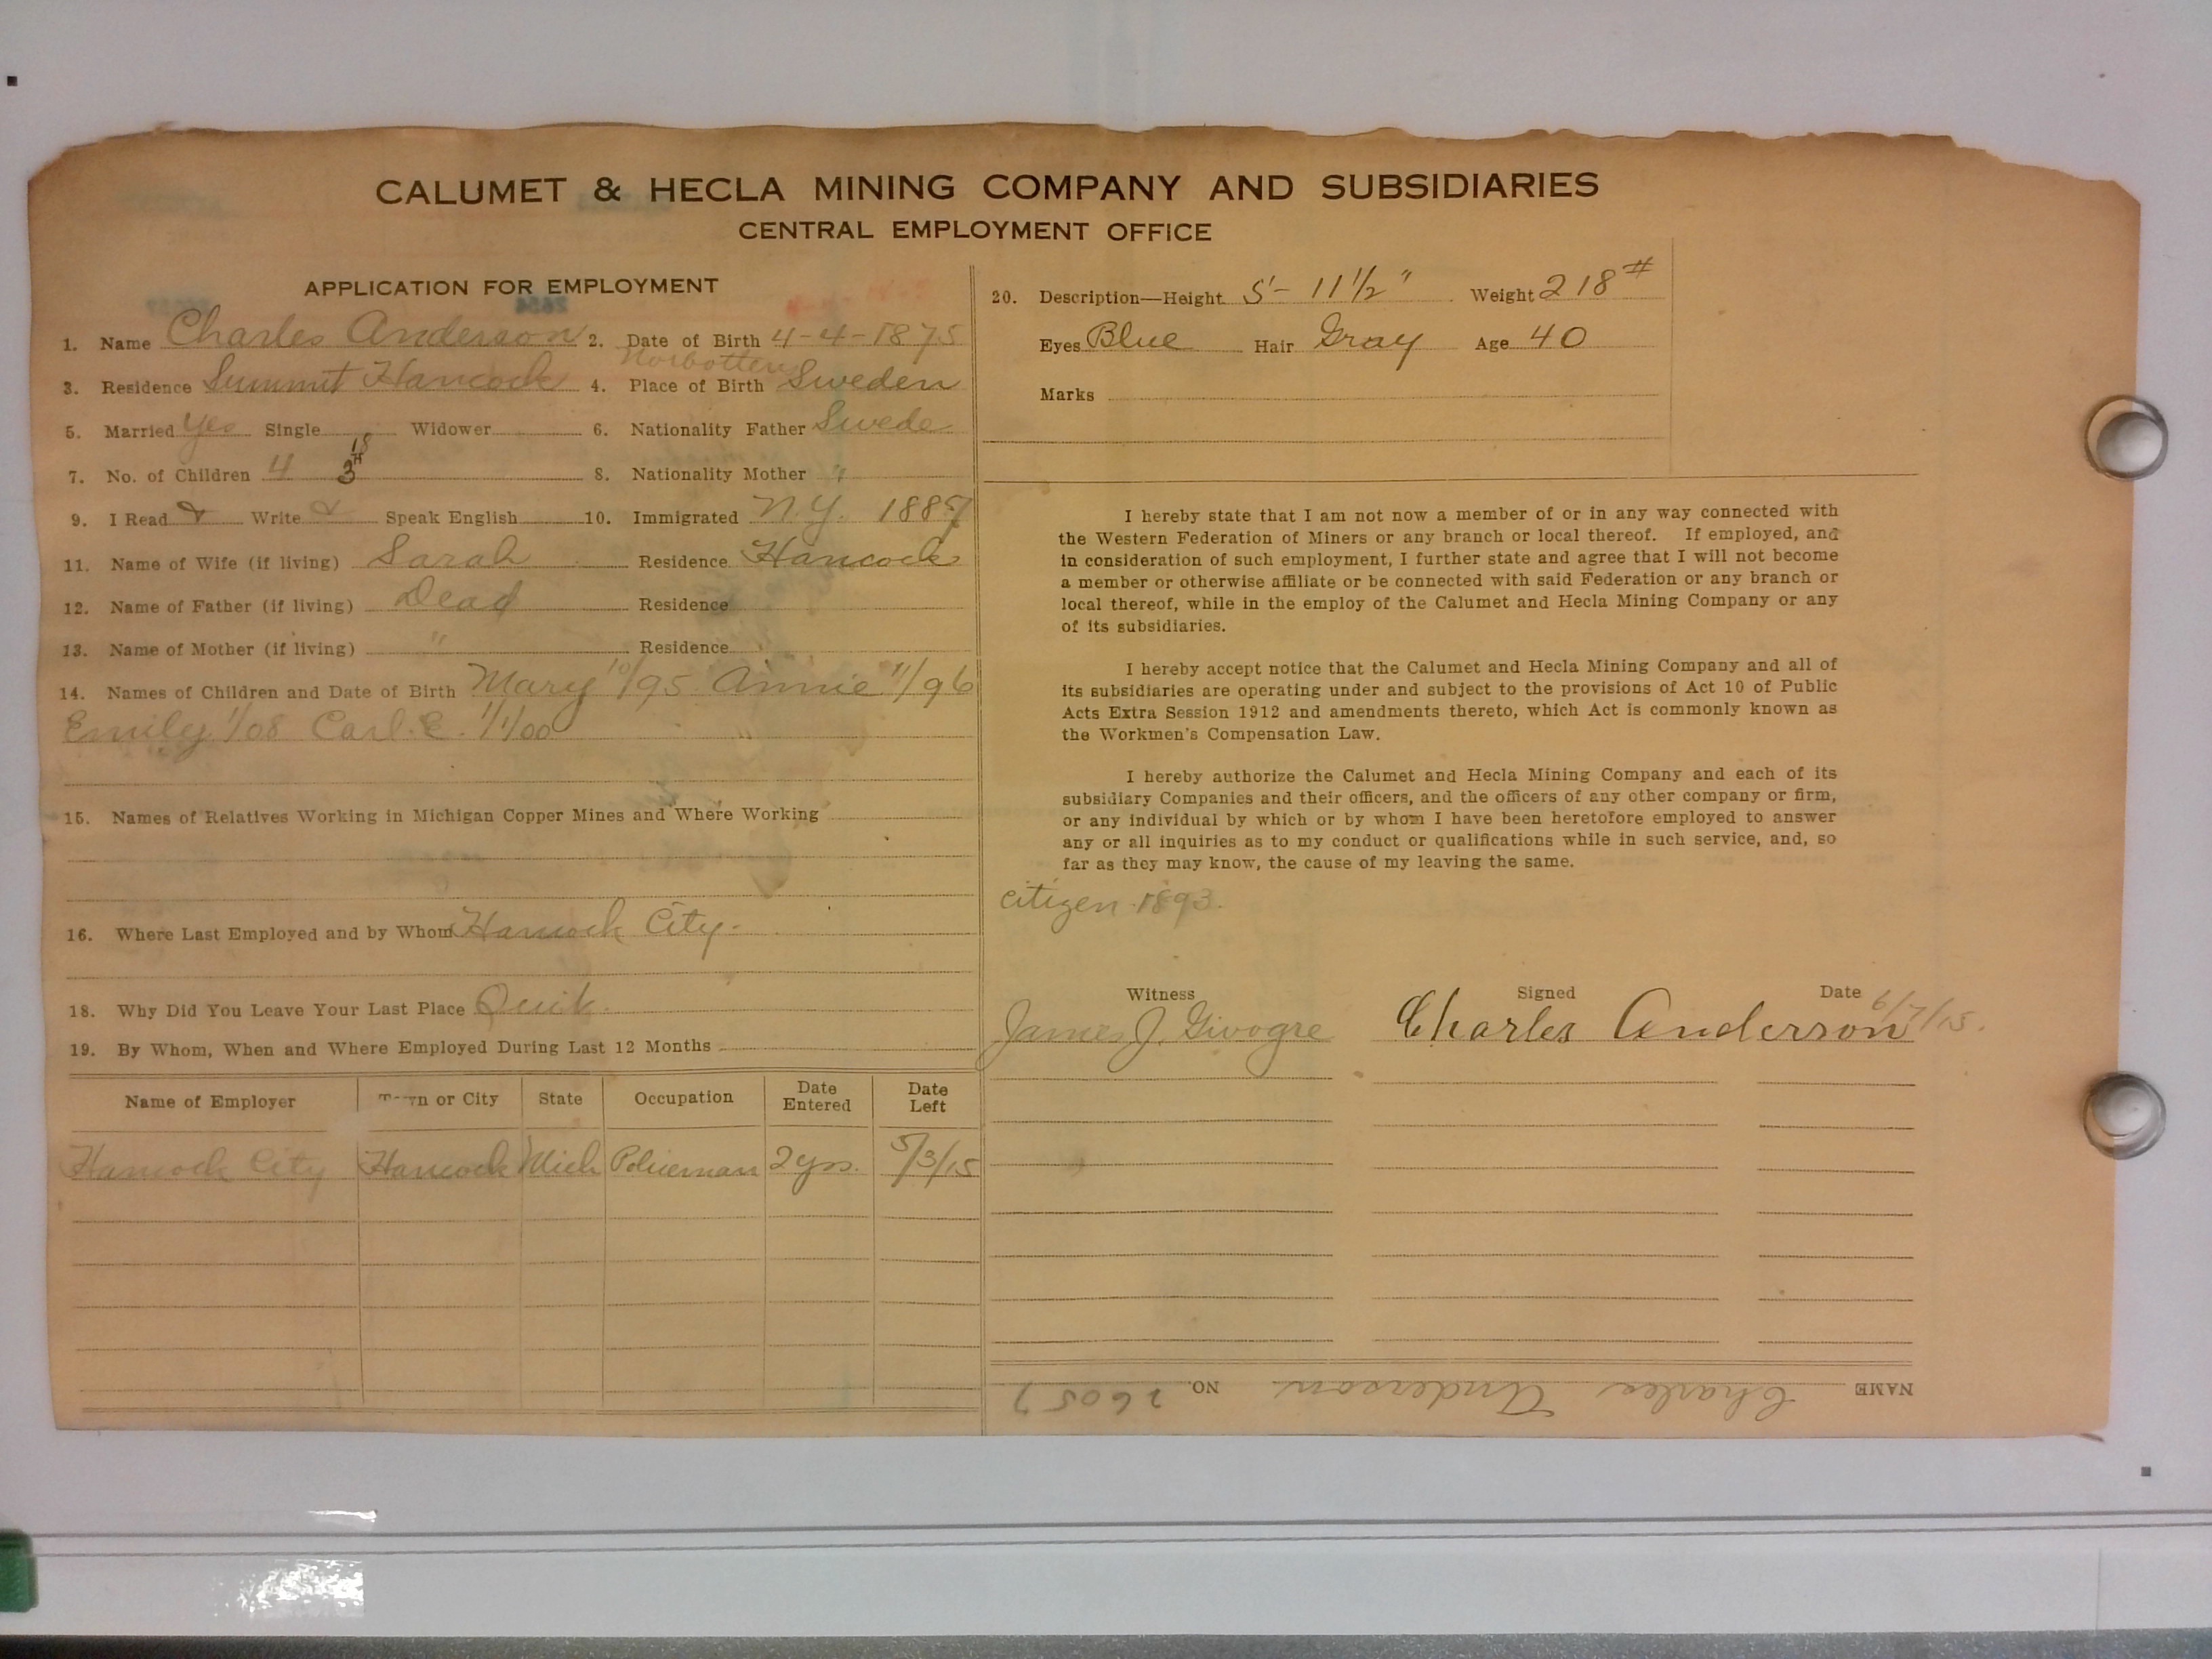 CALUMET & HECLA MINING COMPANY AND SUBSIDIARIES
CENTRAL EMPLOYMENT OFFICE
APPLICATION FOR EMPLOYMENT
1. Name Charles Anderson 2. Date of Birth 4-4-1875
Norbotten
3. Residence Summit Hancock 4. Place of Birth Sweden
5. Married Yes Single Widower 6. Nationality Father Swede
7. No. of Children 4 8. Nationality Mother "
9. I Read Write Speak English 10. Immigrated N.Y. 1887
11. Name of Wife (if living) Sarah Residence Hancock
12. Name of Father (if living) Dead Residence
13. Name of Mother (if living) " Residence
14. Names of Children and Date of Birth Mary 10/95 Annie 11/96
Emily 1/08 Carl. E. 1/1/00
15. Names of Relatives Working in Michigan Copper Mines and Where Working
16. Where Last Employed and by Whom Hancock City.
18. Why Did You Leave Your Last Place Quit.
19. By Whom, When and Where Employed During Last 12 Months
Name of Employer or City State Occupation Date Entered Date Left
Hancock City Hancock Mich Policeman 2 yrs. 5/3/15
20. Description—Height 5'- 11½" Weight 218#
Eyes Blue Hair Gray Age 40
Marks
I hereby state that I am not now a member of or in any way connected with
the Western Federation of Miners or any branch or local thereof. If employed, and
in consideration of such employment, I further state and agree that I will not become
a member or otherwise affiliate or be connected with said Federation or any branch or
local thereof, while in the employ of the Calumet and Hecla Mining Company or any
of its subsidiaries.
I hereby accept notice that the Calumet and Hecla Mining Company and all of
its subsidiaries are operating under and subject to the provisions of Act 10 of Public
Acts Extra Session 1912 and amendments thereto, which Act is commonly known as
the Workmen's Compensation Law.
I hereby authorize the Calumet and Hecla Mining Company and each of its
subsidiary Companies and their officers, and the officers of any other company or firm,
or any individual by which or by whom I have been heretofore employed to answer
any or all inquiries as to my conduct or qualifications while in such service, and, so
far as they may know, the cause of my leaving the same.
citizen 1893.
Witness Signed Date 6/7/15.
James J. Givogre Charles Anderson
NAME Charles Anderson NO. 26057